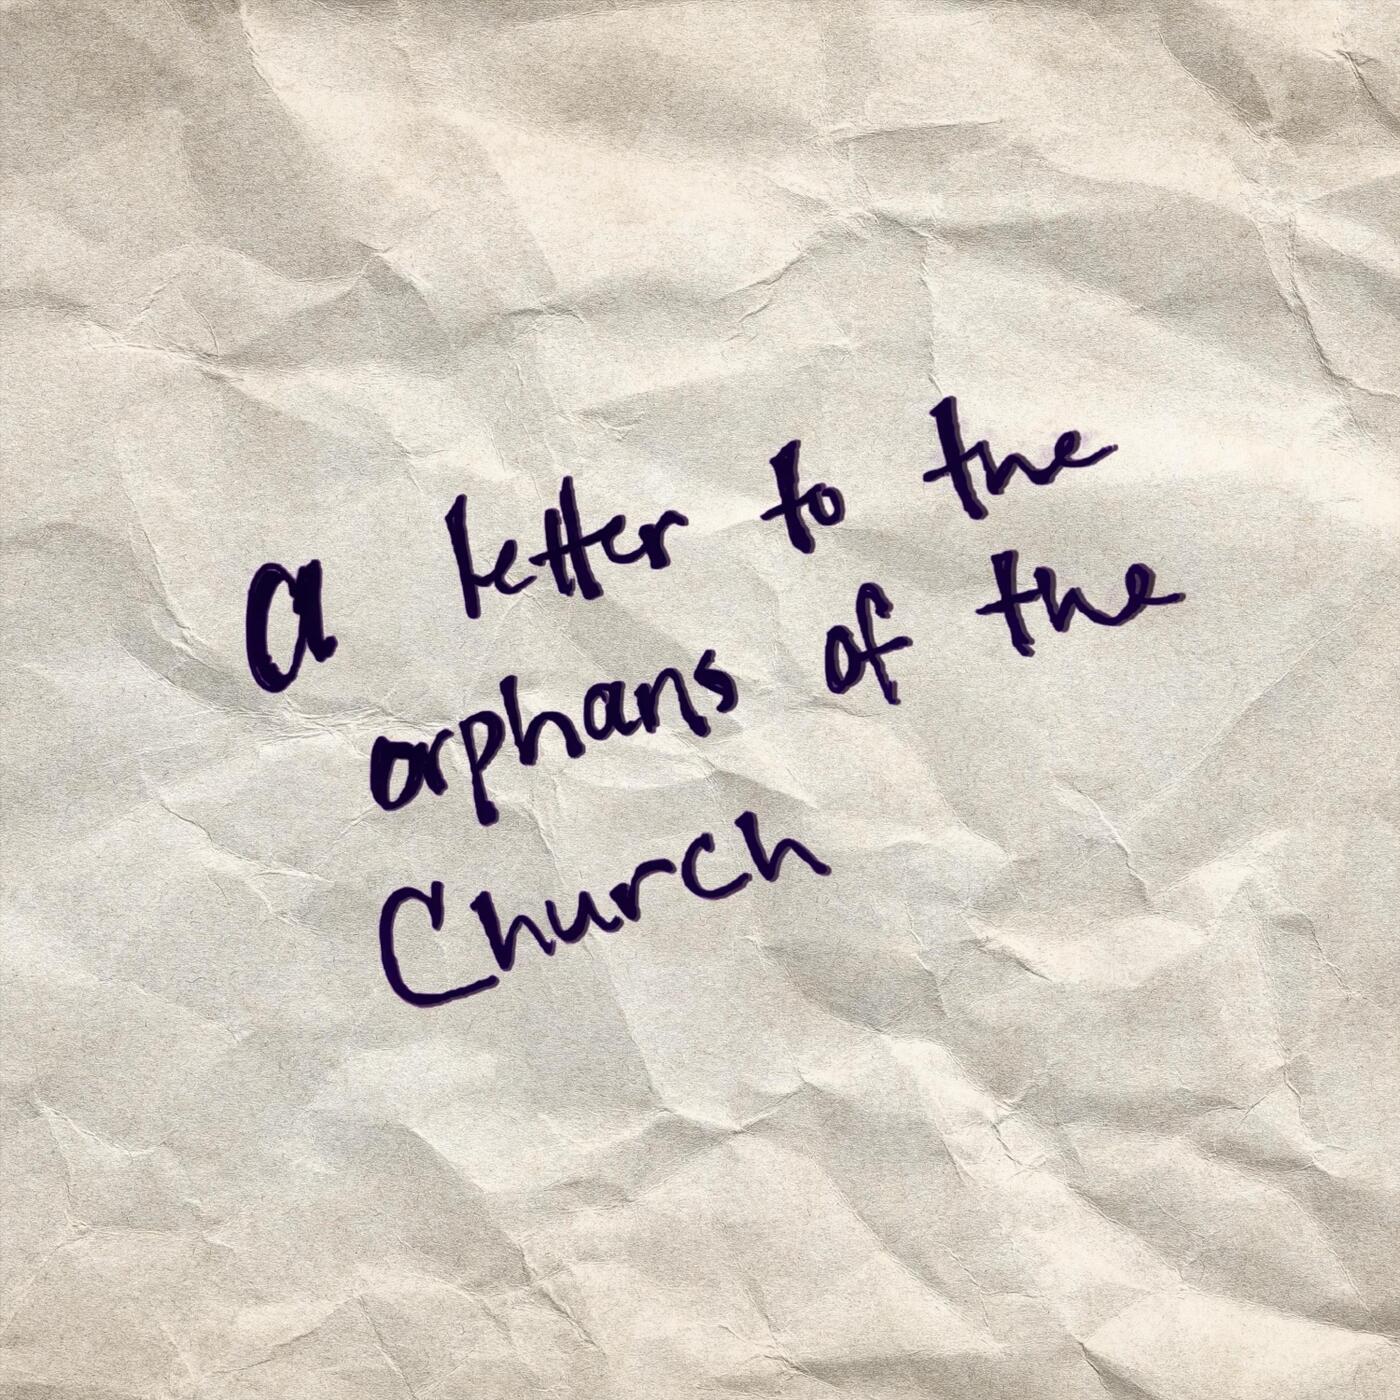 a letter to the
orphans of the
Church